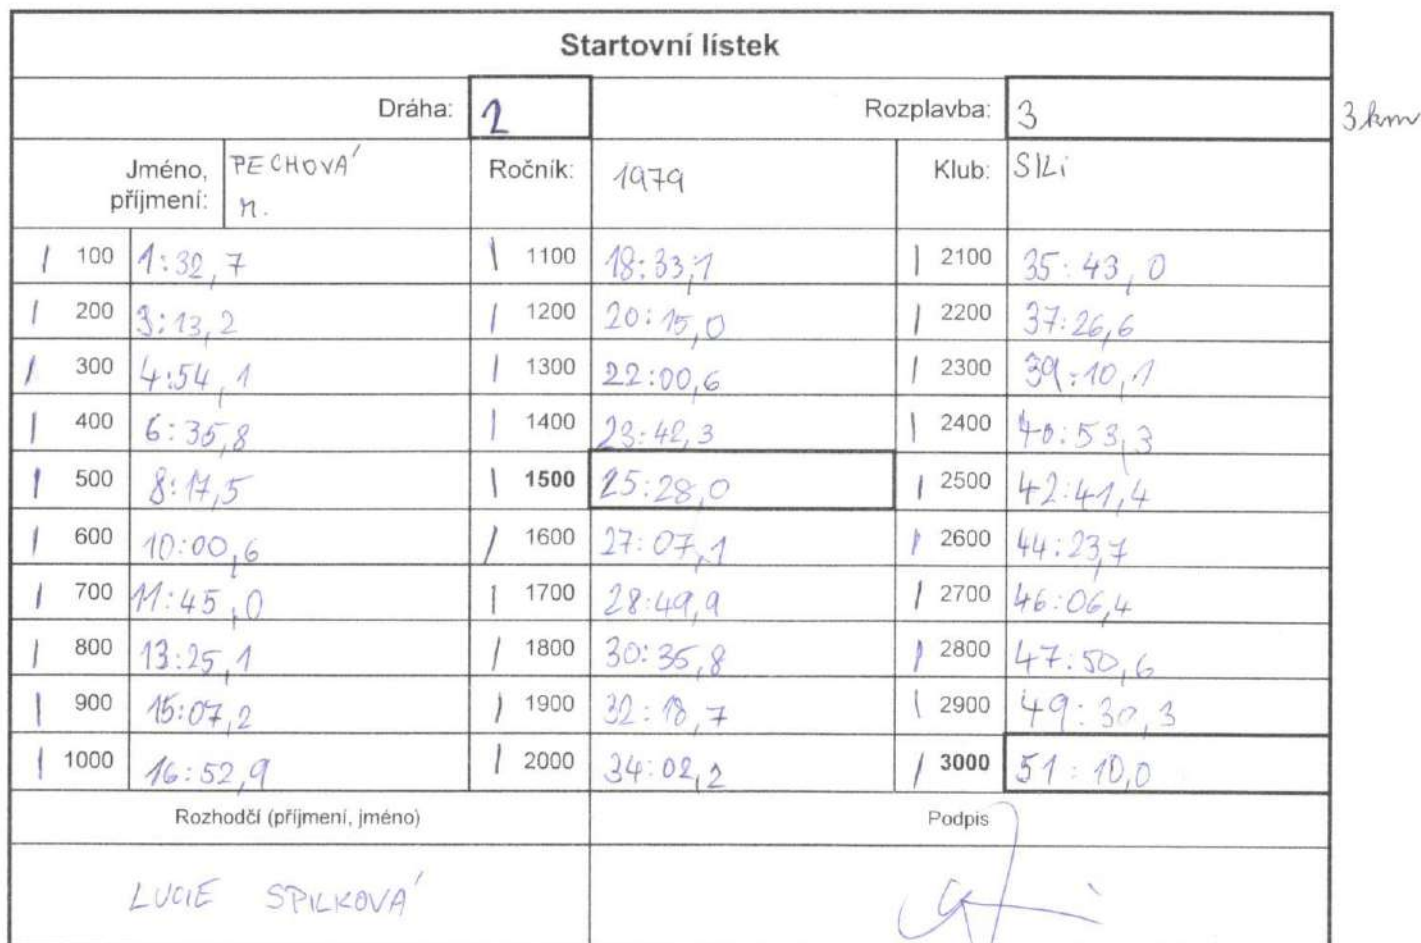 Startovní lístek
Dráha: 2 Rozplavba: 3 3km
Jméno, příjmení: PECHOVÁ M. Ročník: 1979 Klub: SKi
100 1:32,7 1100 18:33,1 2100 35:43,0
200 3:13,2 1200 20:15,0 2200 37:26,6
300 4:54,1 1300 22:00,6 2300 39:10,1
400 6:35,8 1400 23:42,3 2400 40:53,3
500 8:17,5 1500 25:28,0 2500 42:41,4
600 10:00,6 1600 27:07,1 2600 44:23,7
700 11:45,0 1700 28:49,9 2700 46:06,4
800 13:25,1 1800 30:35,8 2800 47:50,6
900 15:07,2 1900 32:18,7 2900 49:30,3
1000 16:52,9 2000 34:02,2 3000 51:10,0
Rozhodčí (příjmení, jméno) Podpis
LUCIE SPILKOVÁ